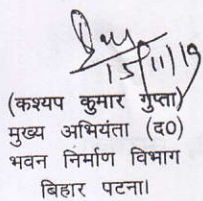 15/11/19
(कश्यप कुमार गुप्ता)
मुख्य अभियंता (द०)
भवन निर्माण विभाग
बिहार पटना।